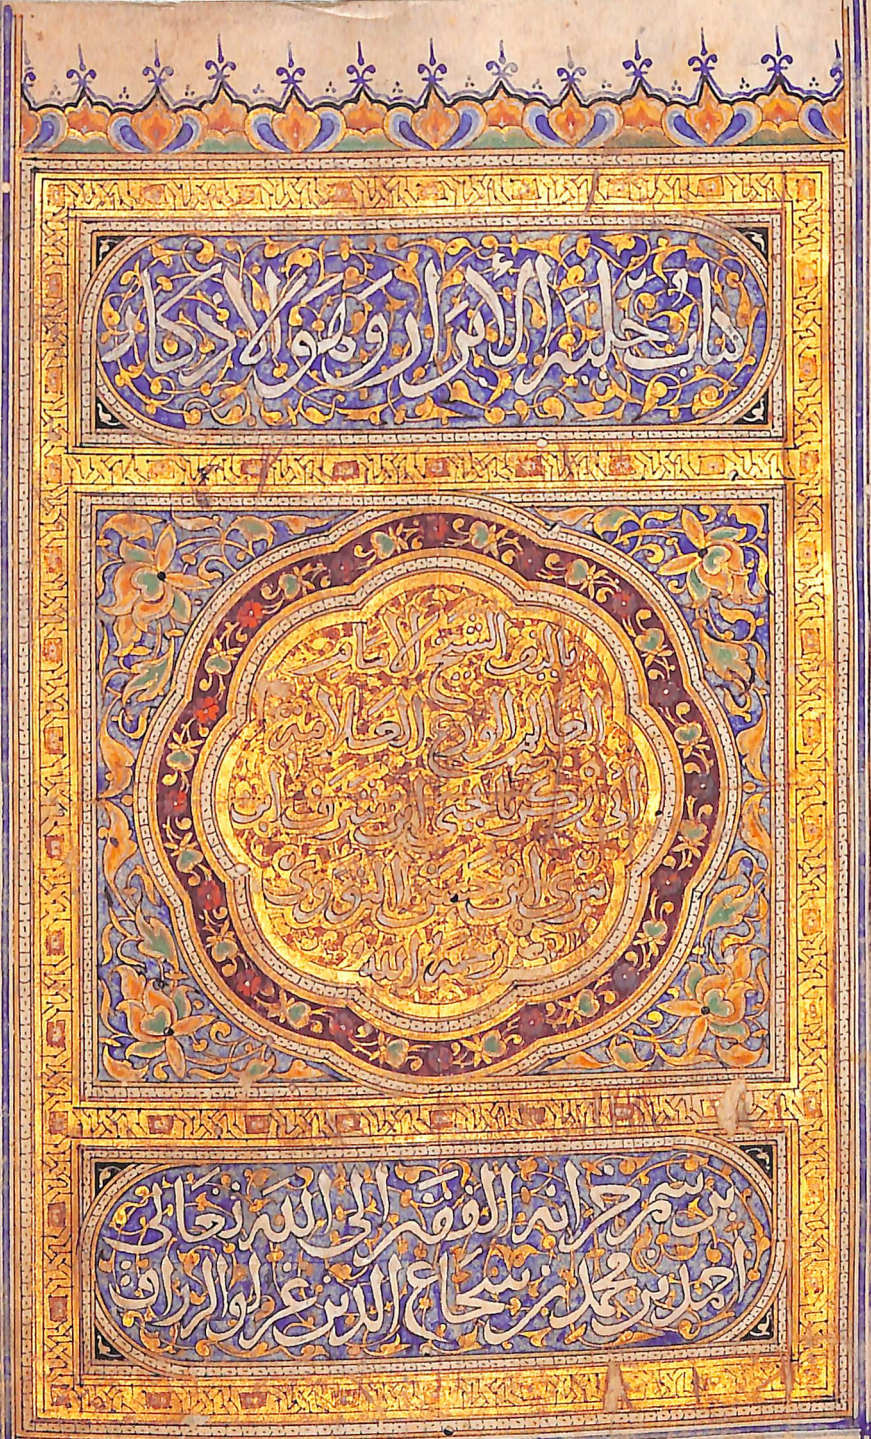 كتاب حلية الأبرار وهو الاذكار
تاليف الشيخ الامام
العالم الورع العلامة
ابى زكريا يحيى بن شرف ابن
مرى ابن حسن النووى
رضى الله
برسم خزانة الفقير الى الله تعالى
احمد بن محمد بن شجاع الدين غفر الله